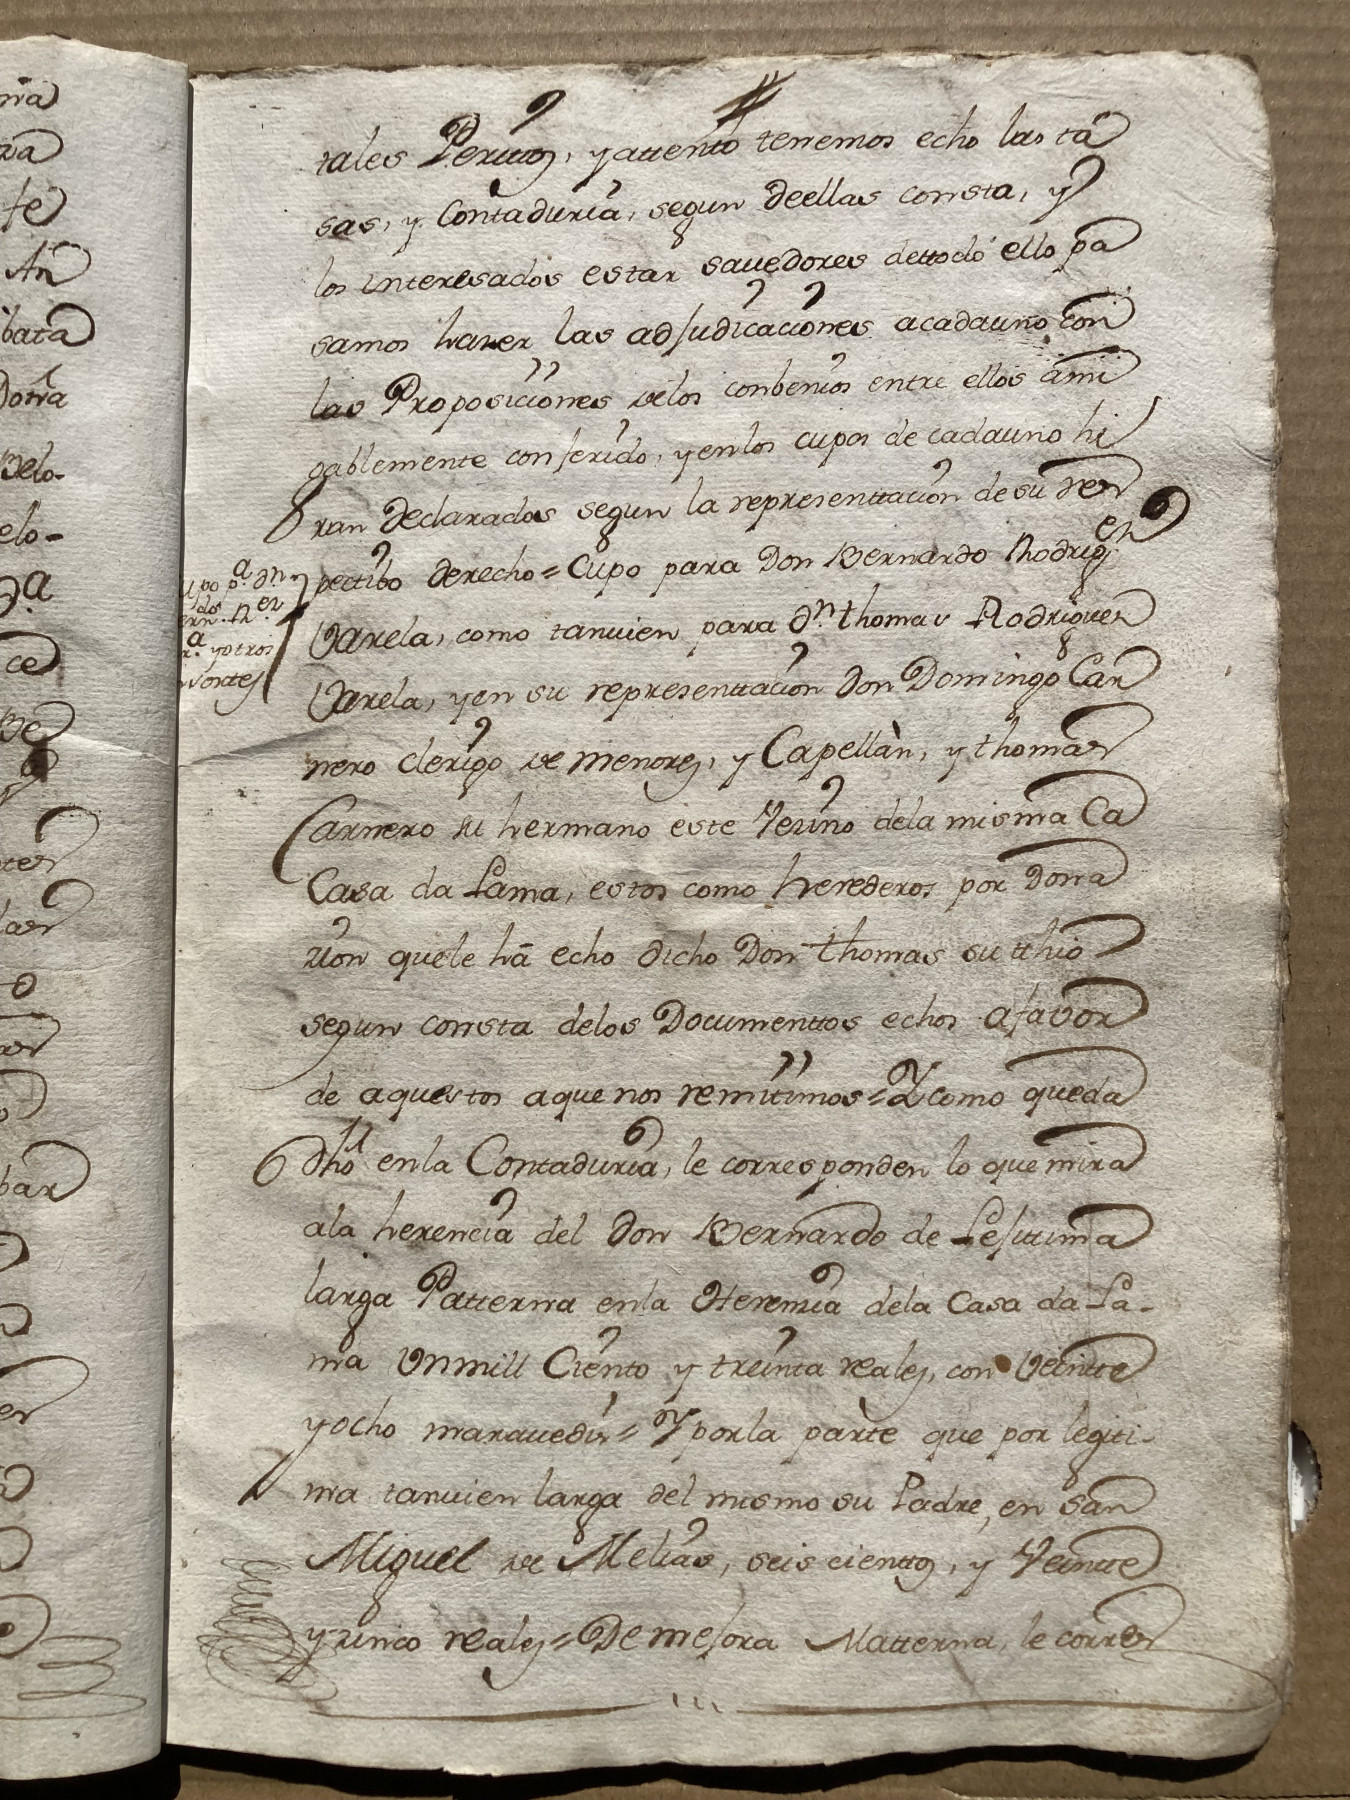 tales Perittos, y attento tenemos echo las ta
sas, y Contaduria, segun deellas consta, y
los interesados estar savedores dettodo ello pa
samos haser las adjudicaciones acadauno con
las Proposiciones delos conbenios entre ellos ami
gablemente conferido, y enlos cupos de cadauno hi
ran declarados segun la representtacion de su res
pectibo derecho = Cupo para Don Bernardo Rodrigᵉᶻ
Varela, como tanvien para Dⁿ thomas Rodrigues
Varela, y en su representtacion Don Domingo Car
nero clerigo de menores, y Capellàn, y thomas
Carnero su hermano este Vecino dela misma Ca
Casa da Lama, estos como herederos por Dona
cion quele hà echo dicho Don thomas su thio
segun consta delos Documenttos echos afavor
de aquestos aque nos remitimos = Y como queda
dhô enla Contaduria, le corresponden lo que mira
ala herencia del Don Bernardo de Lejittima
larga Patterna enla Herencia dela Casa da La-
ma Unmill Ciento y treinta reales, con Veintte
y ocho maravedis = Y porla parte que por legiti-
ma tanvien larga del mismo su Padre, en san
Miguel de Melias, seis cienttos, y Veintte
y zinco reales = De mejora Matterna, le corres
upo pᵃ Dⁿ
ern.ᵈᵒ Rᵉᶻ
rᵃ y otros